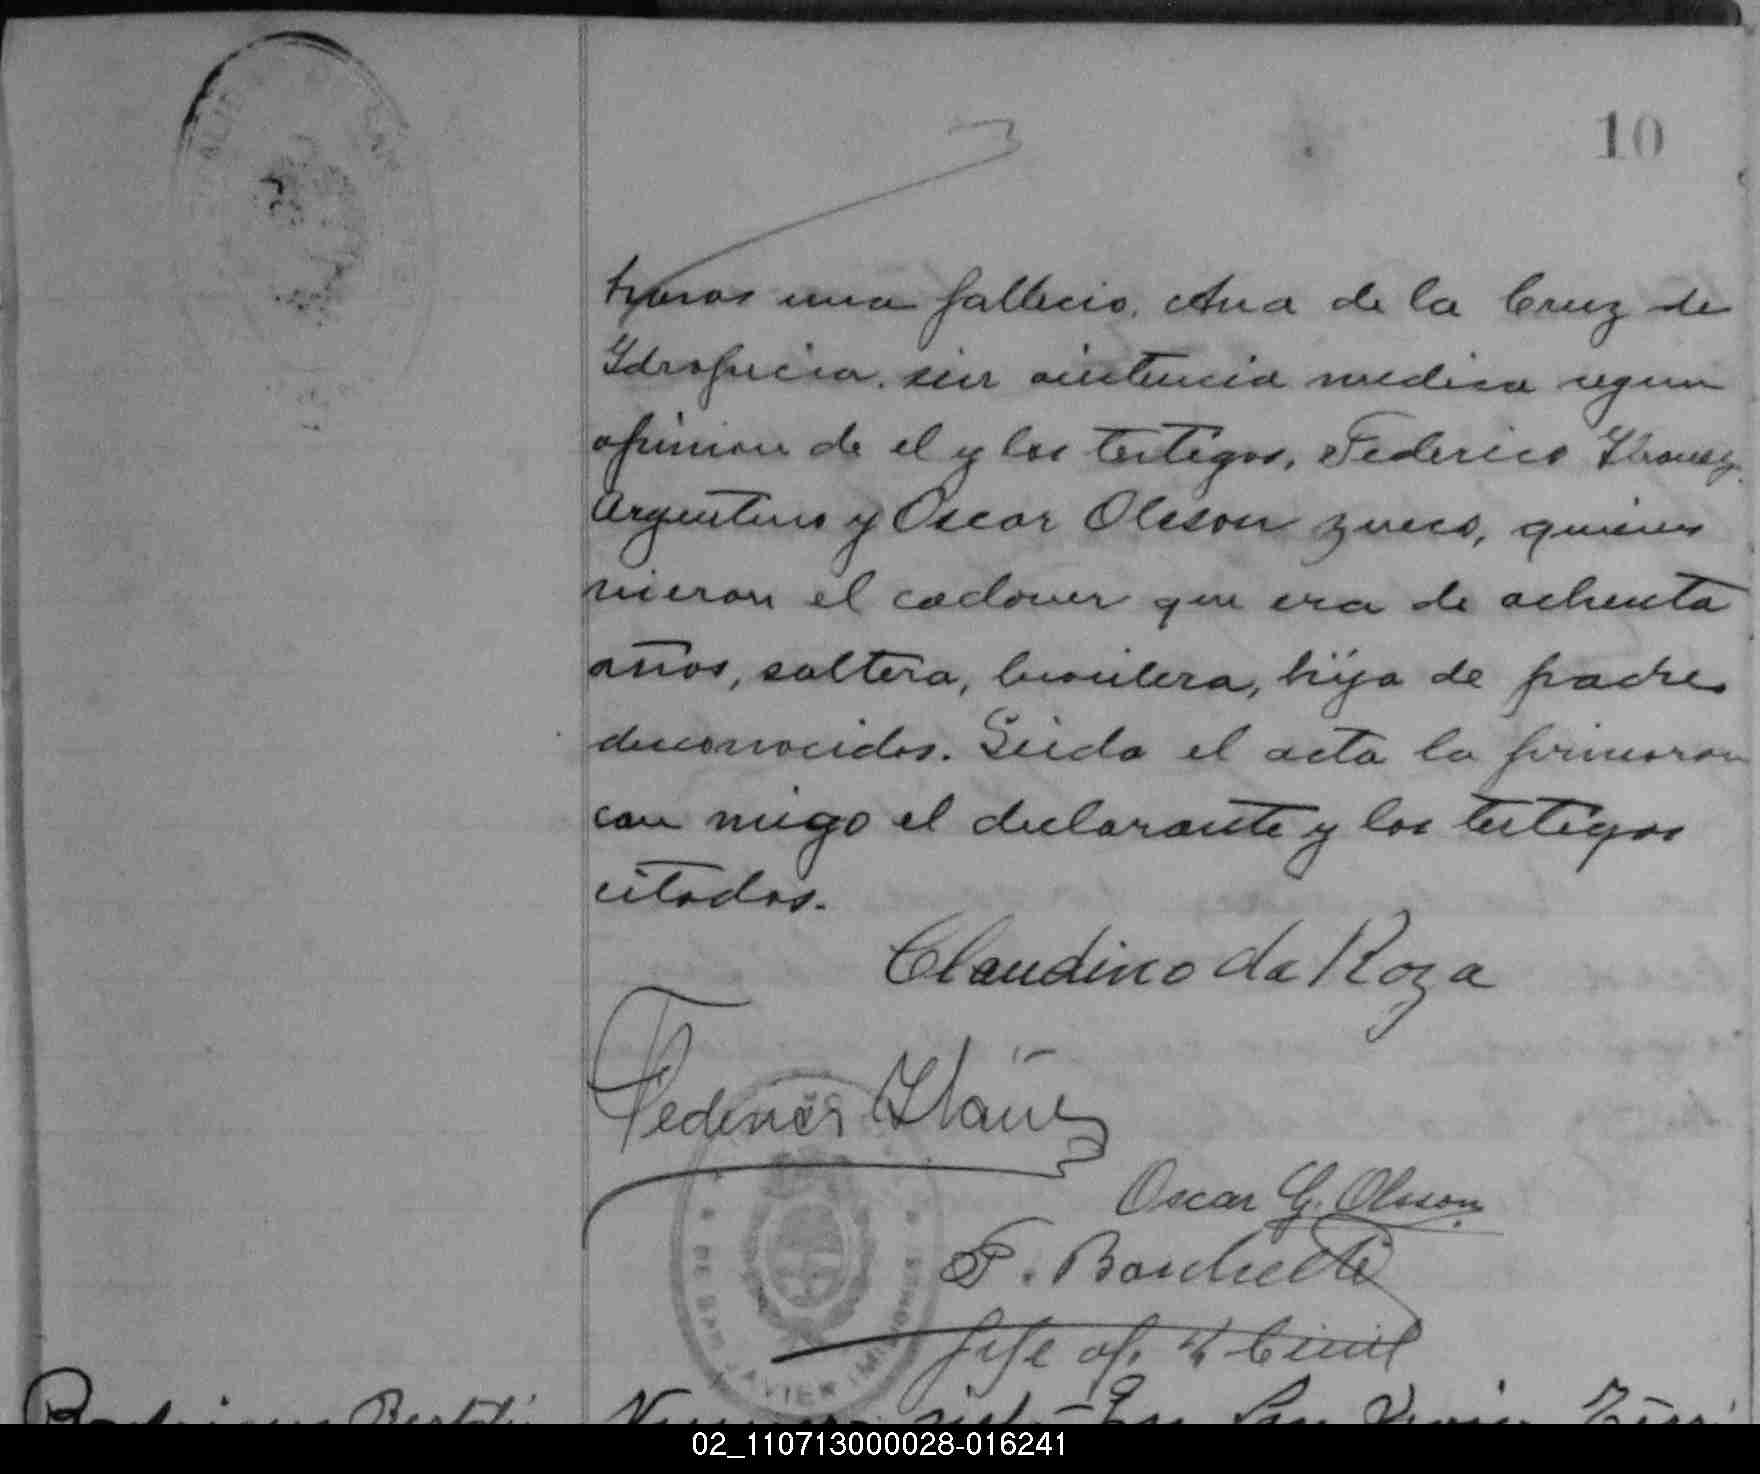 10
horas una fallecio, Ana de la Cruz de
Idropicia, sin asistencia medica segun
opinion de el y los testigos, Federico Ybañez
Argentino y Oscar Olsson zueco, quienes
vieron el cadaver que era de ochenta
años, soltera, brasilera, hija de padres
desconocidos. Leida el acta la firmaron
con migo el declarante y los testigos
citados.
Claudino da Roza
Federico Ybañez
Oscar G. Olsson
Jefe of. R Civil
DE SAN JAVIER (MISIONES)
En San Javier
02_110713000028-016241